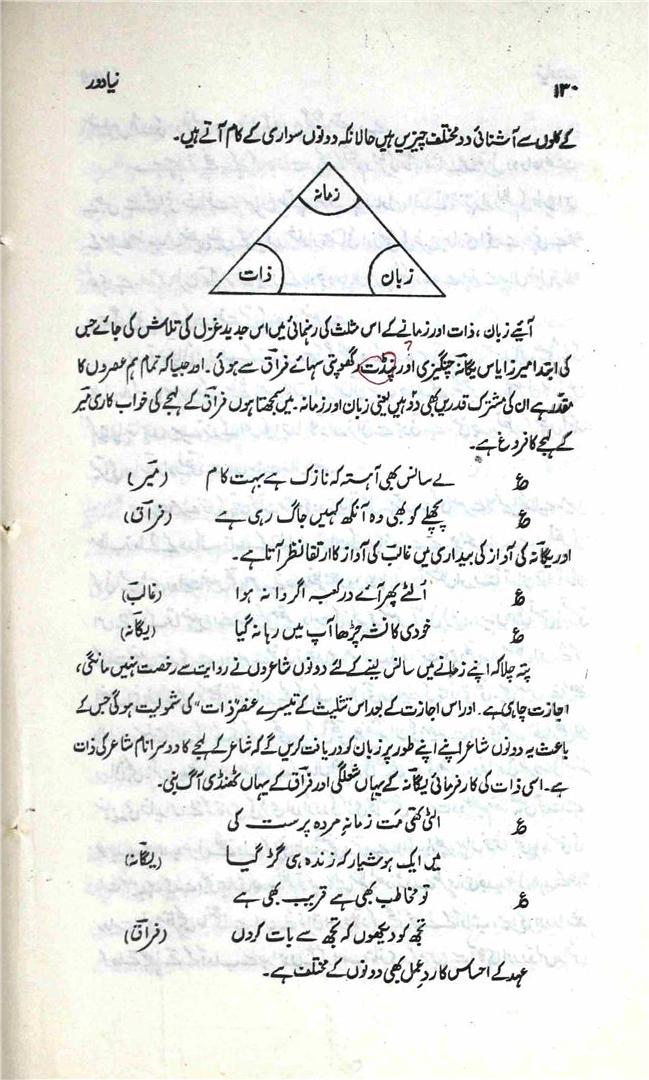 ۱۳۰
نیا دور
کے گلوں سے آشنائی دو مختلف چیزیں ہیں حالانکہ دونوں سواری کے کام آتے ہیں۔
زمانہ
زبان
ذات
آئیے زبان، ذات اور زمانے کے اس مثلث کی رہنمائی میں اس جدید غزل کی تلاش کی جائے جس
کی ابتدا میرزا یاس یگانہ چنگیزی اور پنڈت رگھوپتی سہائے فراق سے ہوئی۔ اور جیسا کہ تمام ہم عصروں کا
مقدر ہے ان کی مشترک قدریں بھی دو ہیں یعنی زبان اور زمانہ۔ میں سمجھتا ہوں فراق کے لہجے کی خواب کاری میر
کے لہجے کا فروغ ہے۔
ع لے سانس بھی آہستہ کہ نازک ہے بہت کام (میر)
ع پچھلے کو بھی وہ آنکھ کہیں جاگ رہی ہے (فراق)
اور یگانہ کی آواز کی بیداری میں غالب کی آواز کا ارتقا نظر آتا ہے۔
ع اُلٹے پھر آئے درِ کعبہ اگر وا نہ ہوا (غالب)
ع خودی کا نشہ چڑھا آپ میں رہا نہ گیا (یگانہ)
پتہ چلا کہ اپنے زمانے میں سانس لینے کے لئے دونوں شاعروں نے روایت سے رخصت نہیں مانگی،
اجازت چاہی ہے۔ اور اس اجازت کے بعد اس تثلیث کے تیسرے عنصر "ذات" کی شمولیت ہوگی جس کے
باعث یہ دونوں شاعر اپنے اپنے طور پر زبان کو دریافت کریں گے کہ شاعر کے لہجے کا دوسرا نام شاعر کی ذات
ہے۔ اسی ذات کی کارفرمائی یگانہ کے یہاں شعلگی اور فراق کے یہاں ٹھنڈی آگ بنی۔
ع الٹی تھی مت زمانۂ مردہ پرست کی
میں ایک ہوشیار کہ زندہ ہی گڑ گیا (یگانہ)
ع تو مخاطب بھی ہے قریب بھی ہے
تجھ کو دیکھوں کہ تجھ سے بات کروں (فراق)
عہد کے احساس کا ردِ عمل بھی دونوں کے مختلف ہے۔